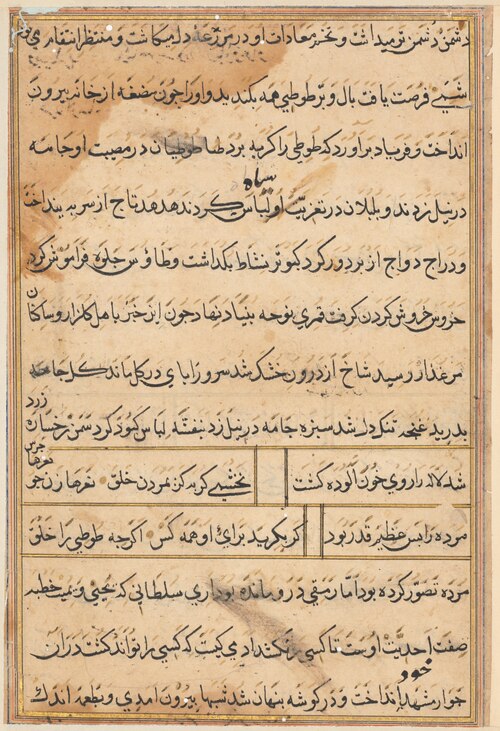 دشمن دشمن تو میداشت و تخم معادات او در مزرعهٔ دل میکاشت و منتظر انتقام می بود
شبی فرصت یافت بال و پر طوطی همه بکند بدو اورا جون مضغه از خانه بیرون
انداخت و فریاد براورد که طوطی را کربه برد طوطیان در مصیبت او جامه
سیاه
در نیل زدند و بلبلان در تعزیت او لباس کردند هدهد تاج از سر بینداخت
و دراج دواج از بر دور کرد کبوتر نشاط بکذاشت و طاوس جلوه فراموش کرد
خروس خروش کردن کرفت قمری نوحه بنیاد نهاد جون این خبر باهل کلزار و ساکنان
مرغذار رسید شاخ از درون خشک شد سرو را پای در کل ماند کل جامه
بدرید غنجه تنک دل شد سبزه جامه در نیل زد بنفشه لباس کبود کرد سمن رخساره زرد
شد لاله را روی خون آلوده کشت
نخشبی کریه کن بمردن خلق
نعرها زن جو
مرده را بس عظیم قدر بود
کر بکرید برای او همه کس
اکرجه طوطی را خلق
مرده تصور کرده بود اما رمقی در و مانده بود اری سلطانی که یحیی و یمیت خطبه
صفت احدیت اوست تا کسی را نکشد ادمی کیست که کسی را تواند کشت دران
خود
جوار مشهد انداخت و در کوشه بنهان شد شبها بیرون امدی و بطعمه اندک